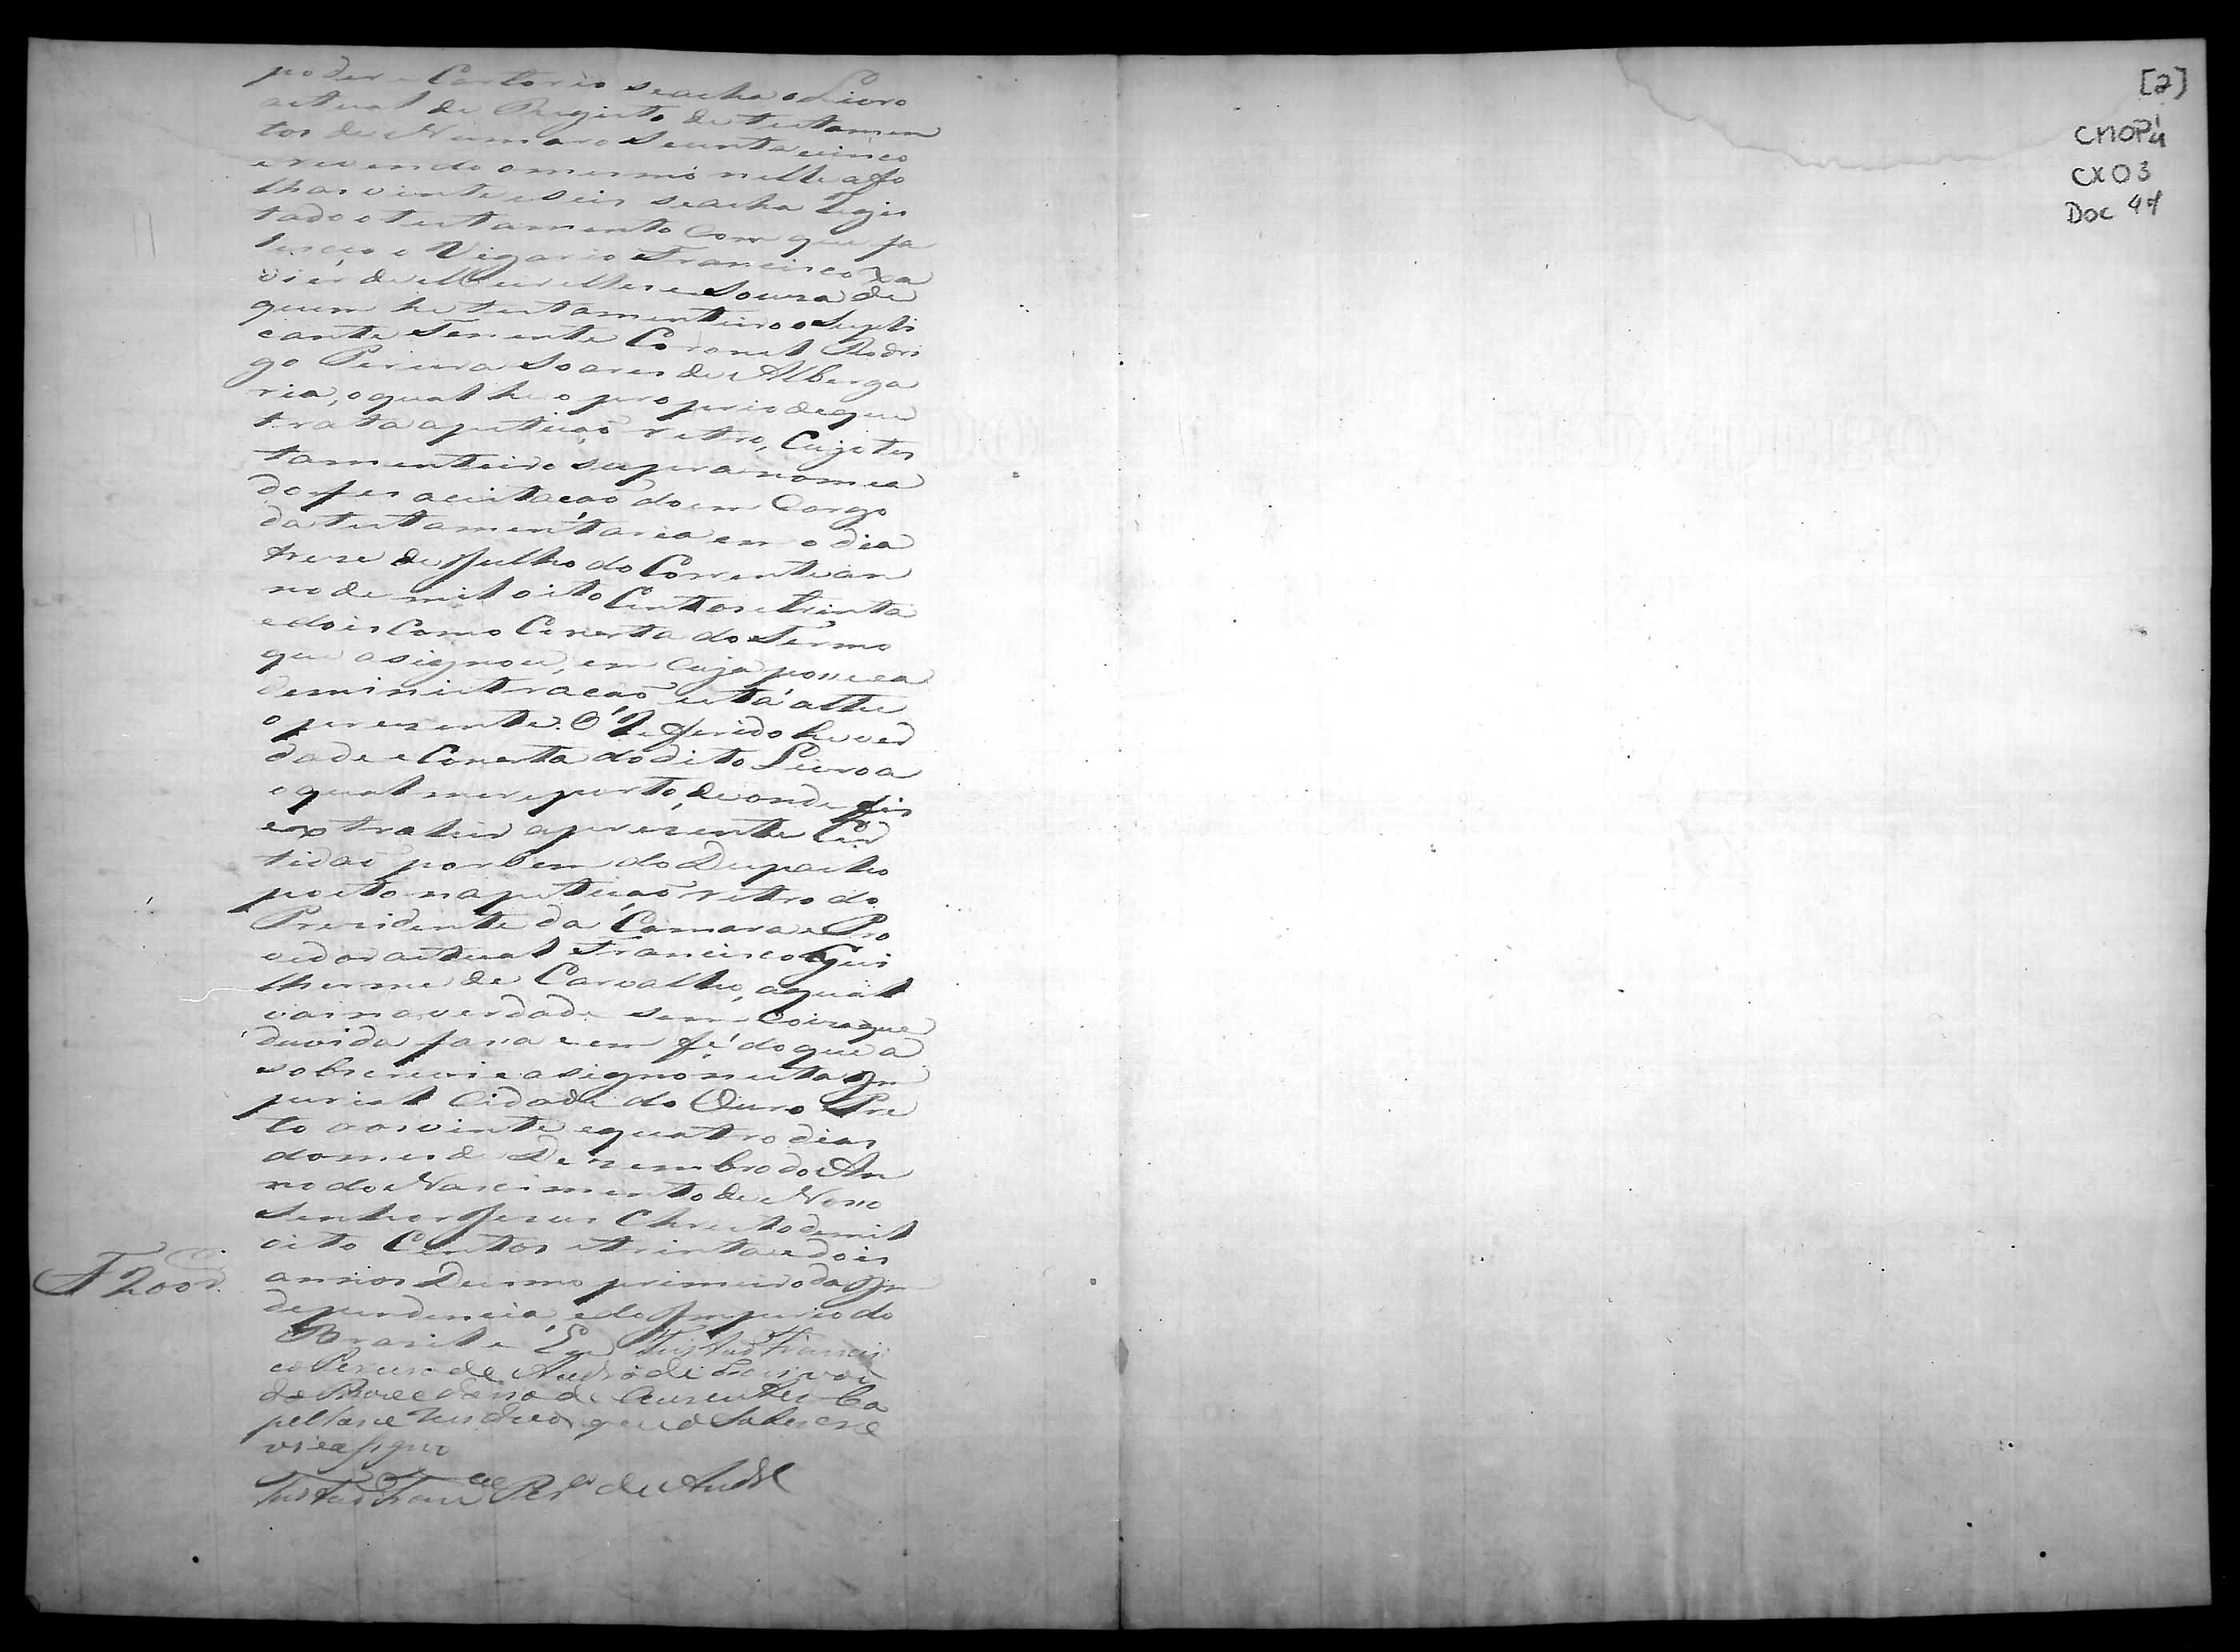 poder e Cartorio seacha o Livro
actual de Registo de testamen
tos de Numaro Secenta ecinco
e revendo o mesmo nelle a fo
lhas vinte e seis seacha Regis
tado o testamento com que fa
lesceo o Vigario Francisco Xa
vier de Meirelles e Sousa de
quem he testamenteiro o Supli
cante Tenente Coronel Rodri
go Pereira Soares de Alberga
ria, o qual he o proprio de que
trata apetiçaõ retro, Cujo tes
tamenteiro supra nomea
do fes aceitaçaõ do em Cargo
da testamentaria em o dia
treze de Julho do Corrente an
no de mil oito Centos e trinta
e dois Como Consta do Termo
que asignou, em cuja posse ea
deministraçaõ está athe
o presente. O Referido he ver
dade e Consta do dito Livro a
o qual me reporto, de onde fis
extrahir apresente Cer
tidaõ por bem do Despacho
posto na petiçaõ retro do
Presidente da Camara e Pro
vedor actual Francisco Gui
lherme de Carvalho, aqual
vai na verdade sem Coiza que
duvida faça e em fé do que a
sobscrevi e asigno nesta Im
perial Cidade do Ouro Pre
to aos vinte equatro dias
do mes de Dezembro do An
no do Nascimento de Nosso
Senhor Jesus Christo de mil
oito Centos e trinta e dois
annos Decimo primeiro da In
dependencia, e do Imperio do
Brasil e Eu Francis
co Pereira de Andrade Escrivaõ
da Provedoria de Ausentes Ca
pellas e Residuos que o Subscre
vi e asigno
Franco Pera de Andre
200 r.
[2]
CMOP
CX 03
Doc 44